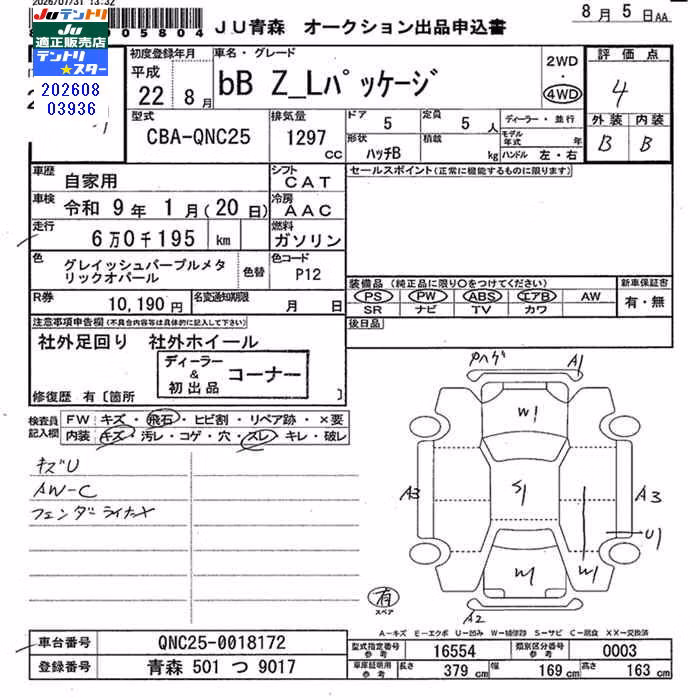 2026/07/31 13:32
8月5日AA
JU青森 オークション出品申込書
JUテントリ
JU
適正販売店
テントリ★スター
202608
03936
初度登録年月
平成
22 8月
車名・グレード
bB Z_Lパッケージ
2WD
・
4WD
評価点
4
外装 内装
B B
型式
CBA-QNC25
排気量
1297
CC
ドア
5
定員
5 人
形状
ハッチB
積載
kg
ディーラー・並行
モデル年式 年
ハンドル 左・右
車歴
自家用
シフト
CAT
車検
令和 9年 1月(20日)
冷房
AAC
走行
6万0千195 km
燃料
ガソリン
セールスポイント(正常に機能するものに限ります)
色
グレイッシュパープルメタリックオパール
色替
色コード
P12
R券
10,190円
名変通知期限
月 日
装備品 (純正品に限り○をつけてください)
PS PW ABS エアB AW
SR ナビ TV カワ
新車保証書
有・無
後日品
注意事項申告欄(不具合内容等は具体的に記入して下さい)
社外足回り 社外ホイール
ディーラー
&
初出品
コーナー
修復歴 有〔箇所 〕
検査員記入欄
FW キズ・飛石・ヒビ割・リペア跡・×要
内装 キズ・汚レ・コゲ・穴・スレ・キレ・破レ
キズU
AW-C
フェンダーライナーX
Pハゲ
A1
W1
A3
S1
A3
U1
W1
W1
A2
有
スペア
A-キズ E-エクボ U-凹み W-補修跡 S-サビ C-腐食 XX-交換済
車台番号
QNC25-0018172
登録番号
青森 501 つ 9017
型式指定番号
参考
16554
類別区分番号
参考
0003
車庫証明用
参考
長さ
379 cm
幅
169 cm
高さ
163 cm